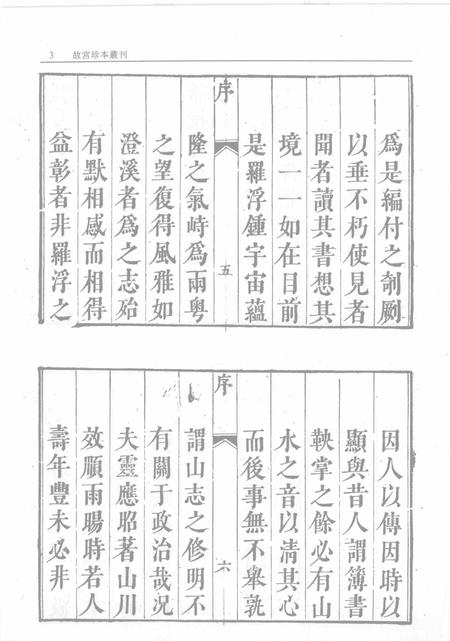 3 故宮珍本叢刊
爲是編付之剞劂
以垂不朽使見者
聞者讀其書想其
境一一如在目前
是羅浮鍾宇宙蘊
序
五
隆之氣峙爲兩粵
之望復得風雅如
澄溪者爲之志殆
有默相感而相得
益彰者非羅浮之
因人以傳因時以
顯與昔人謂簿書
鞅掌之餘必有山
水之音以清其心
而後事無不舉孰
序
六
謂山志之修明不
有關于政治哉況
夫靈應昭著山川
效順雨暘時若人
壽年豐未必非